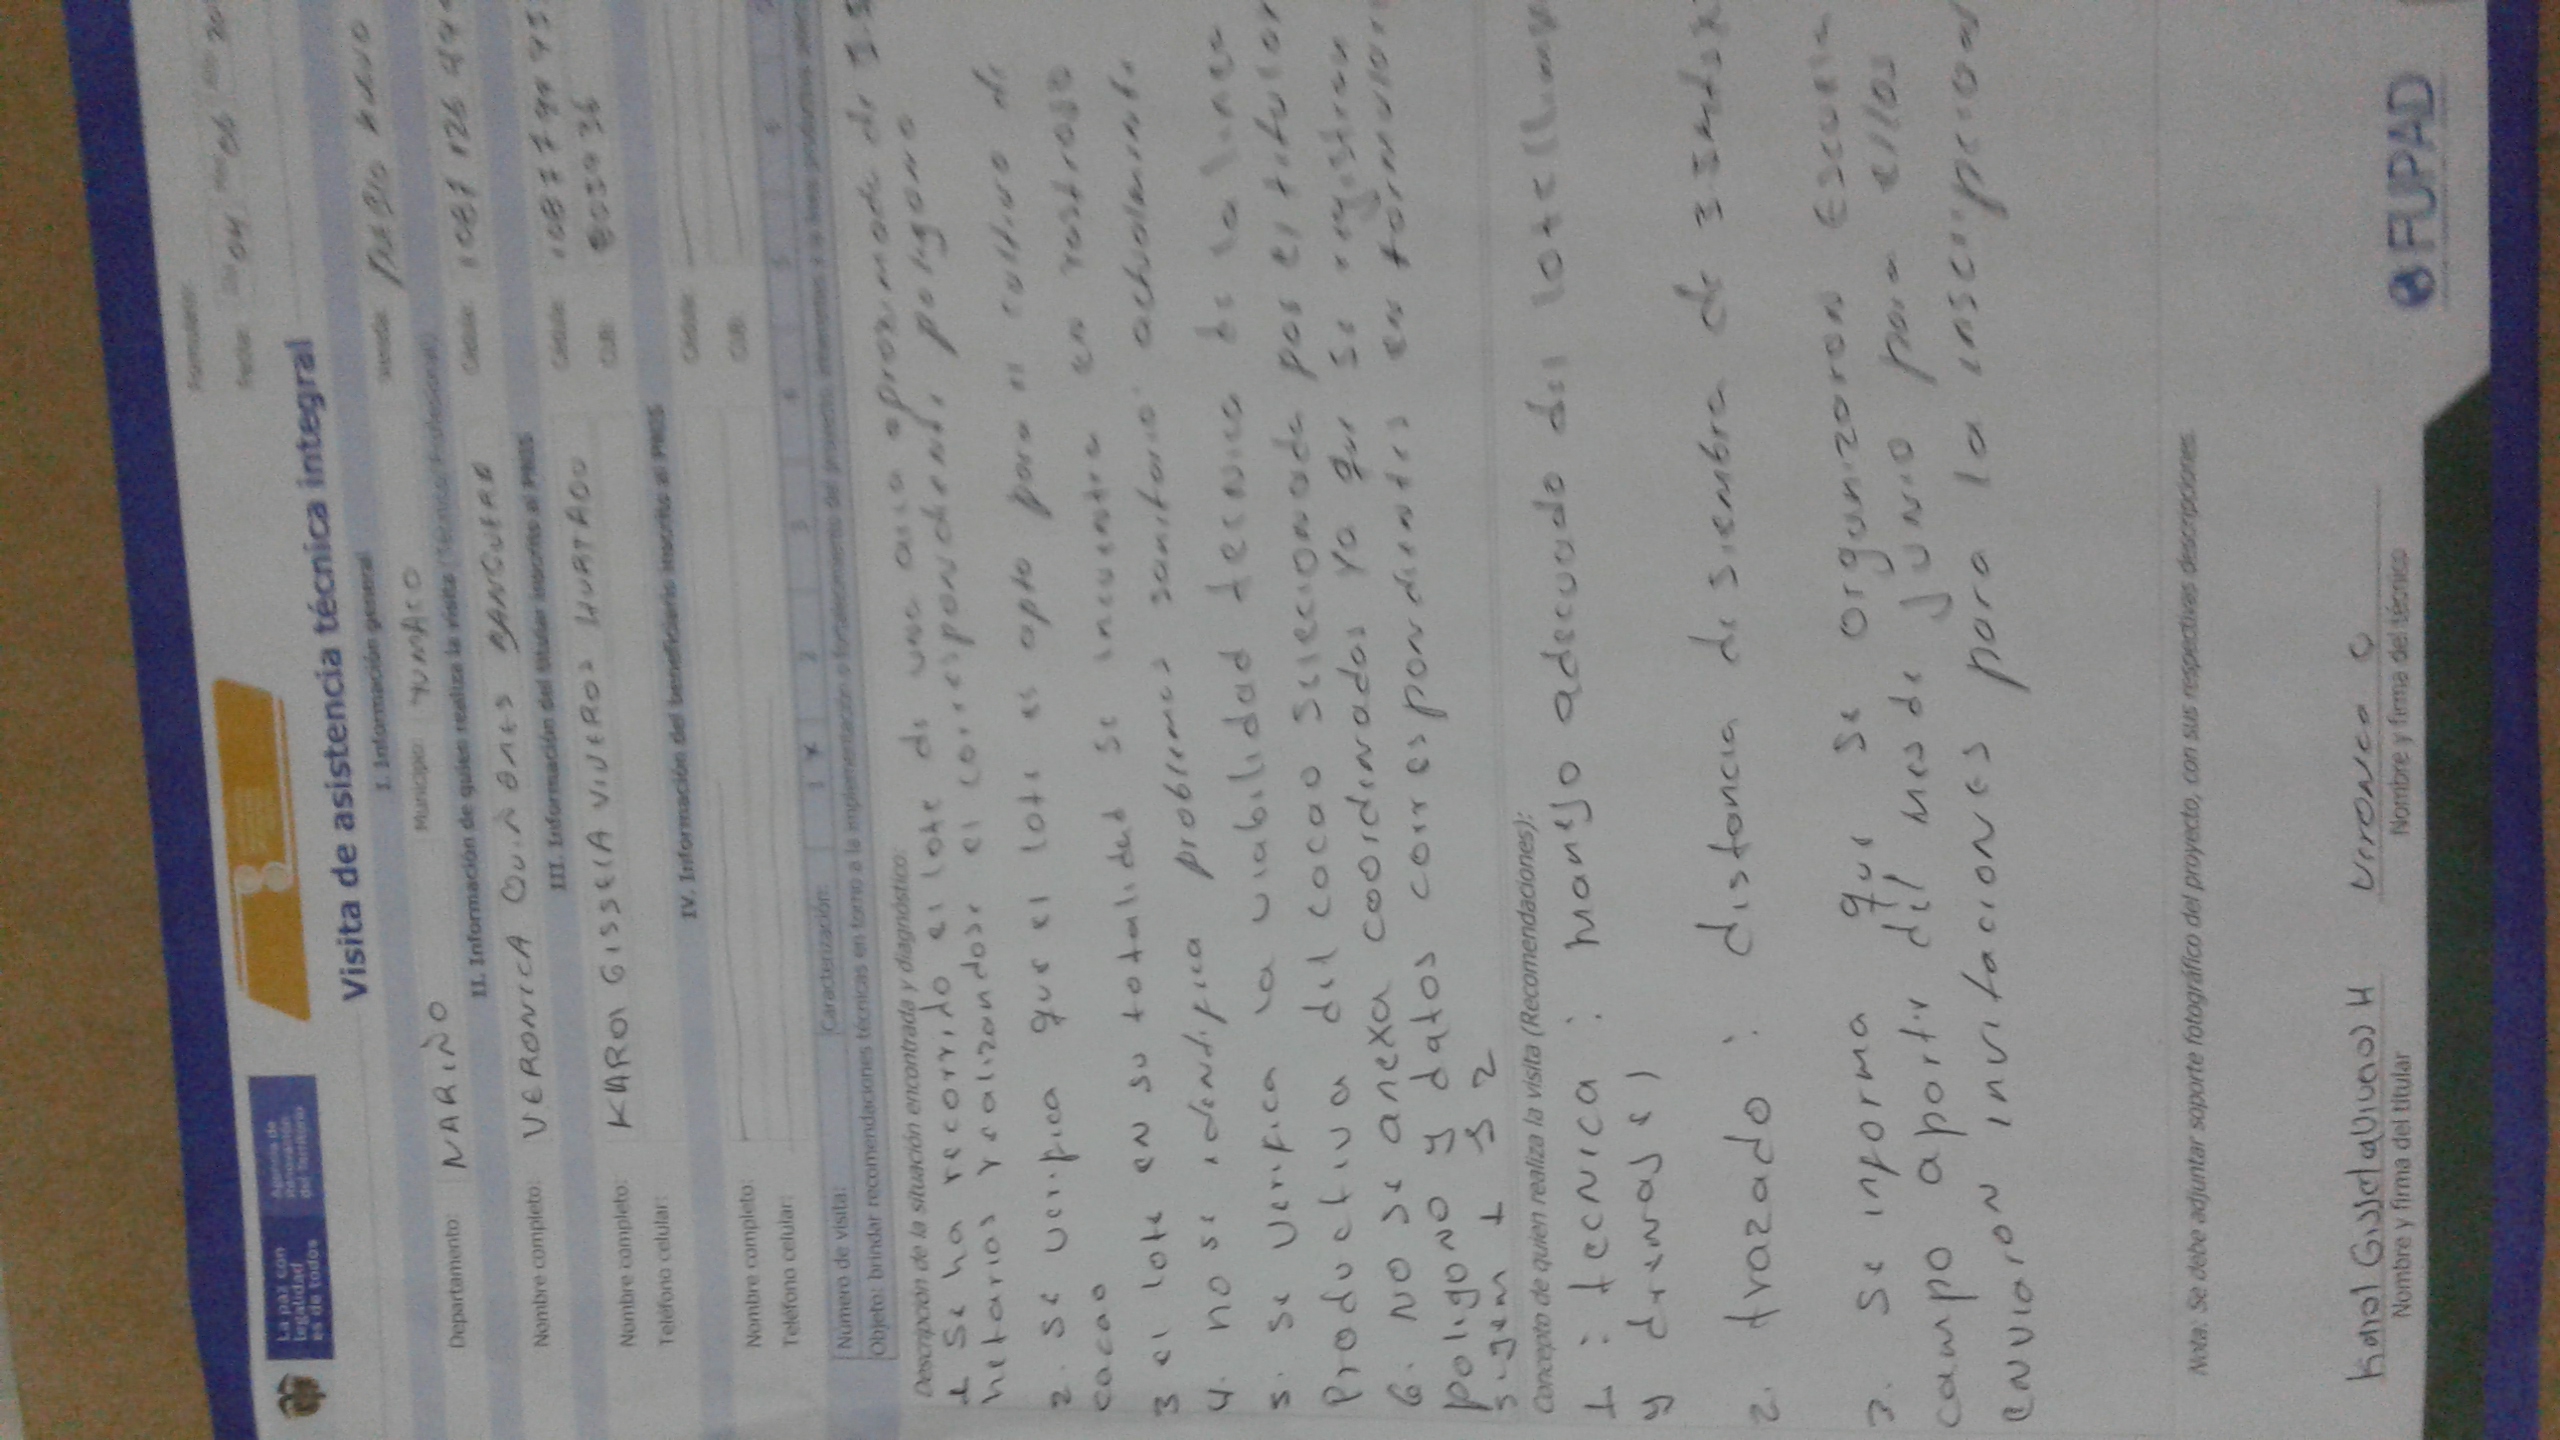 La paz con
legalidad
es de todos
Agencia de
Renovación
del Territorio
Formulario:
Fecha: 04 06
Visita de asistencia técnica integral
I. Información general
Departamento: NARIÑO Municipio: TUMACO Vereda:
II. Información de quien realiza la visita (Técnico, Profesional)
Nombre completo: VERONICA QUIÑONES Cédula: 1087 126
III. Información del titular inscrito al PNIS
Nombre completo: KAROL GISSELA VIVEROS HURTADO Cédula:
Teléfono celular: CUB:
IV. Información del beneficiario inscrito al PNIS
Nombre completo: Cédula:
Teléfono celular: CUB:
Número de visita: Caracterización: 1 X 2 3 4 5 6
Objeto: brindar recomendaciones técnicas en torno a la implementación o fortalecimiento del proyecto,
Descripción de la situación encontrada y diagnóstico:
1 Se ha recorrido el lote de una area aproximada de
hetarias realizandose el correspondiente poligono
2. se verifica que el lote es apto para el cultivo de
cacao
3 el lote en su totalidad se incuentra en rastrojo
4. no se idendifica problemas sanitario actualmente
5. se verifica la viabilidad tecnica de la linea
Productiva del cacao selecionada por el titular
6. No se anexa coordenadas ya que se registran
poligono y datos correspondientes en formulario
sigem 1 y 2
Concepto de quien realiza la visita (Recomendaciones):
1: tecnica: manejo adecuado del lote
y drenaje)
2. trazado: distancia de siembra de
3. Se informa que se organizaron Escuela
campo apartir del mes de junio para ellos
enviaron invitaciones para la inscripcion
Nota: Se debe adjuntar soporte fotográfico del proyecto, con sus respectivas descripciones.
Karol Gissela Viveros H Veronica Q
Nombre y firma del titular Nombre y firma del técnico
FUPAD